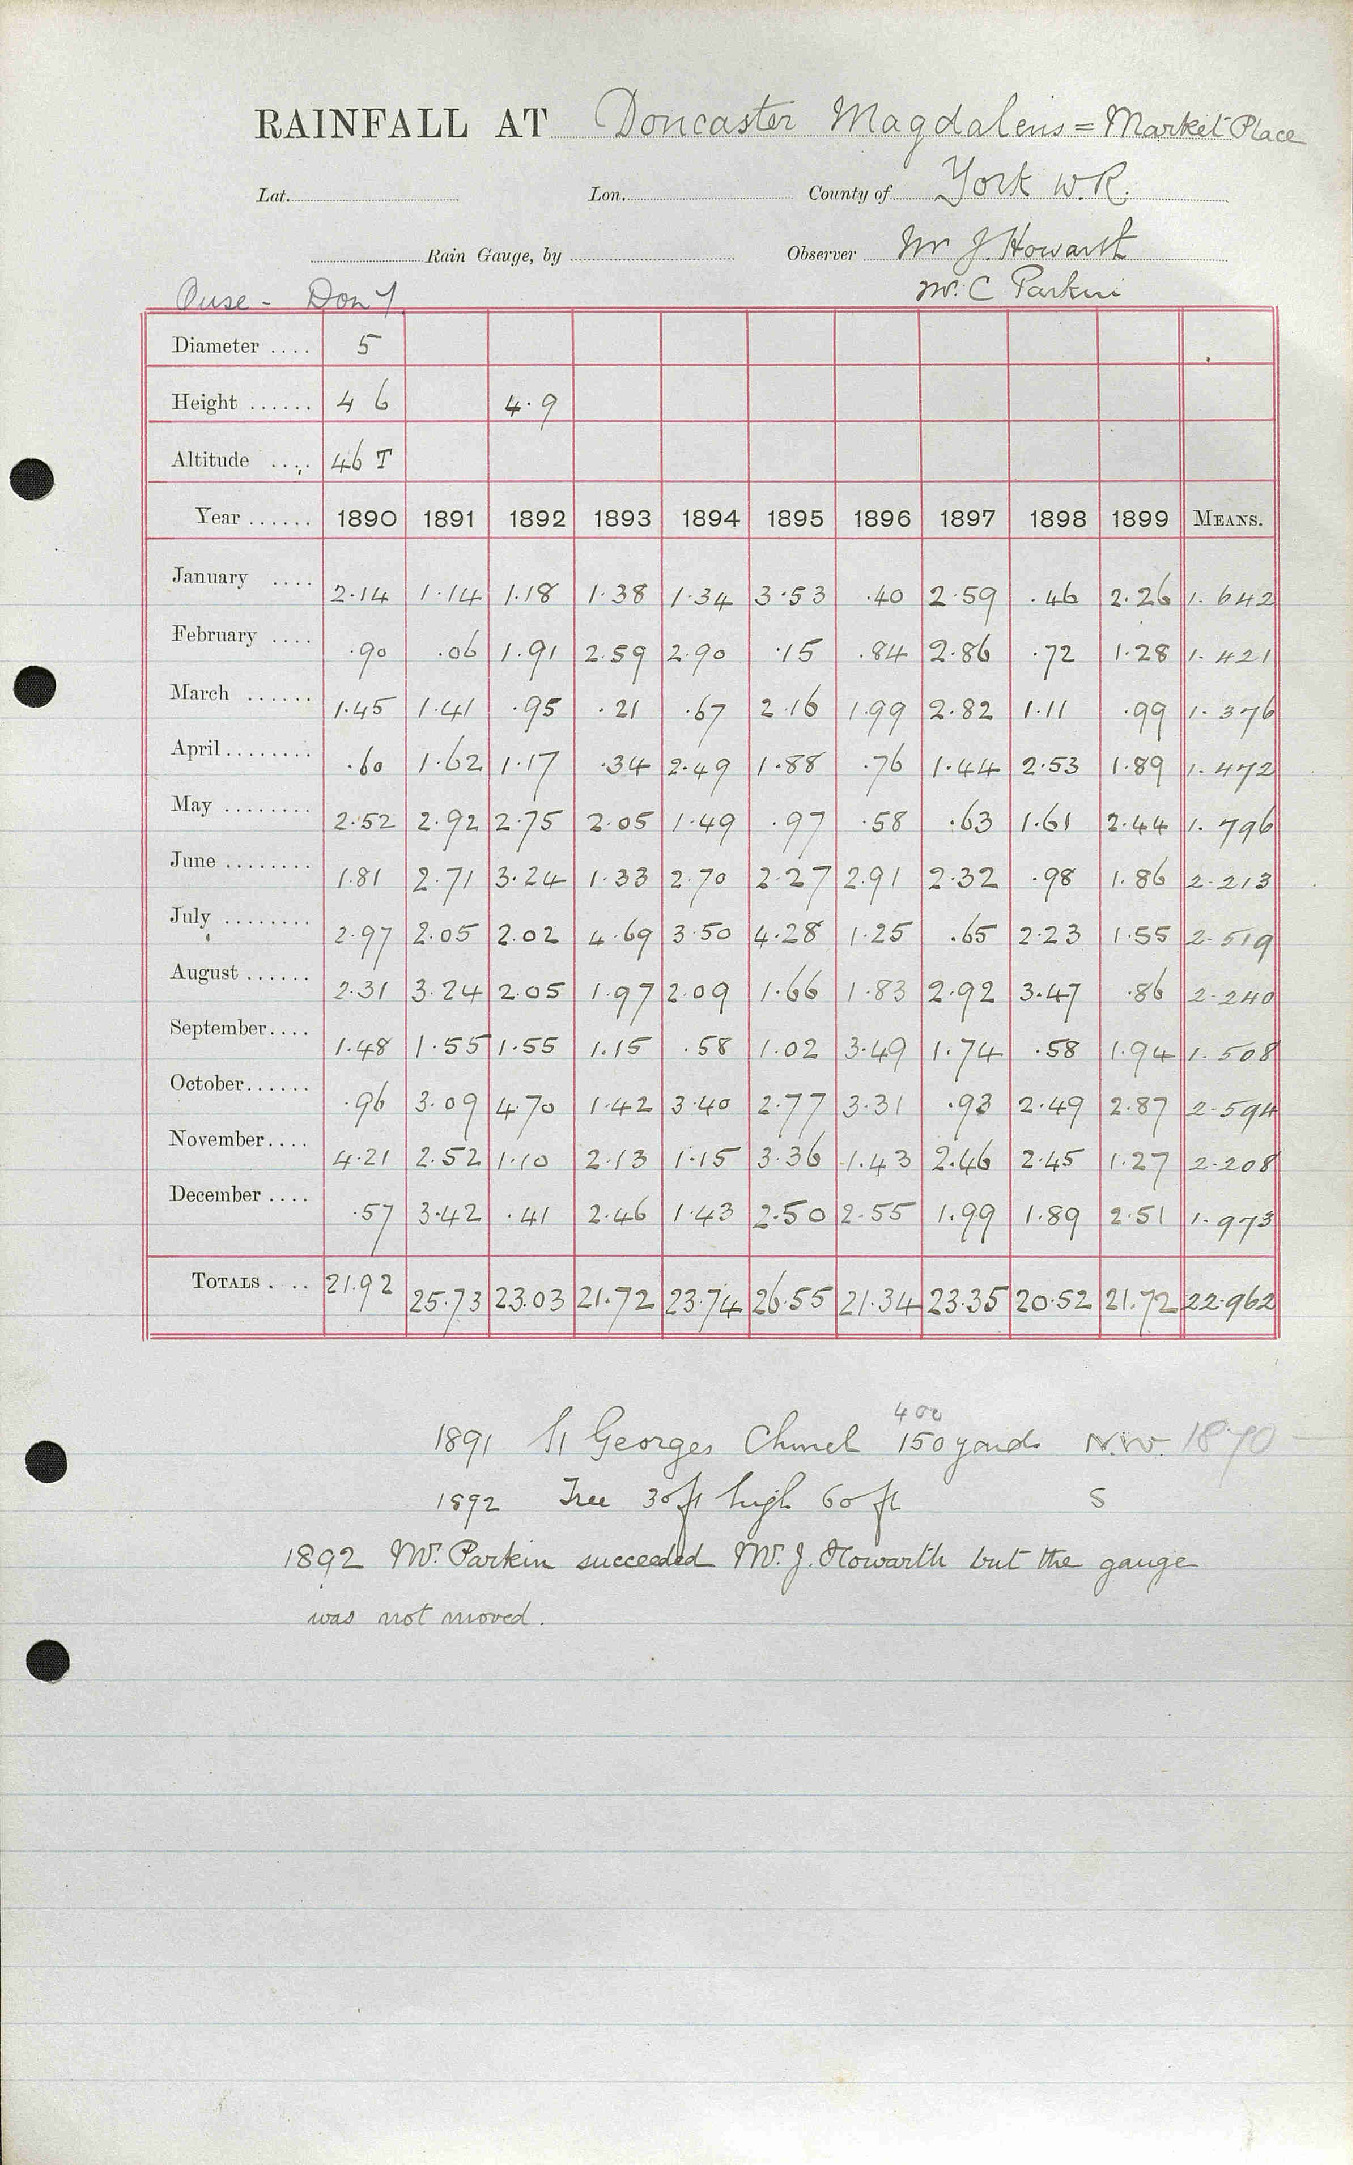 RAINFALL AT Doncaster Magdalens = Market Place
Lat. Lon. County of York W.R.
Rain Gauge, by Observer Mr J. Howarth
Ouse - Don 1 Mr. C Parkin
Diameter .... 5
Height ...... 4 6 4.9
Altitude .... 46 T
Year ...... 1890 1891 1892 1893 1894 1895 1896 1897 1898 1899 MEANS.
January .... 2.14 1.14 1.18 1.38 1.34 3.53 .40 2.59 .46 2.26 1.642
February .... .90 .06 1.91 2.59 2.90 .15 .84 2.86 .72 1.28 1.421
March ...... 1.45 1.41 .95 .21 .67 2.16 1.99 2.82 1.11 .99 1.376
April ........ .60 1.62 1.17 .34 2.49 1.88 .76 1.44 2.53 1.89 1.472
May ........ 2.52 2.92 2.75 2.05 1.49 .97 .58 .63 1.61 2.44 1.796
June ........ 1.81 2.71 3.24 1.33 2.70 2.27 2.91 2.32 .98 1.86 2.213
July ........ 2.97 2.05 2.02 4.69 3.50 4.28 1.25 .65 2.23 1.55 2.519
August ...... 2.31 3.24 2.05 1.97 2.09 1.66 1.83 2.92 3.47 .86 2.240
September.... 1.48 1.55 1.55 1.15 .58 1.02 3.49 1.74 .58 1.94 1.508
October...... .96 3.09 4.70 1.42 3.40 2.77 3.31 .93 2.49 2.87 2.594
November.... 4.21 2.52 1.10 2.13 1.15 3.36 1.43 2.46 2.45 1.27 2.208
December .... .57 3.42 .41 2.46 1.43 2.50 2.55 1.99 1.89 2.51 1.973
TOTALS .... 21.92 25.73 23.03 21.72 23.74 26.55 21.34 23.35 20.52 21.72 22.962
400
1891 St Georges Church 150 yards N.W. 1870
1892 Tree 30 ft high 60 ft S
1892 Mr. Parkin succeeded Mr. J. Howarth but the gauge
was not moved.